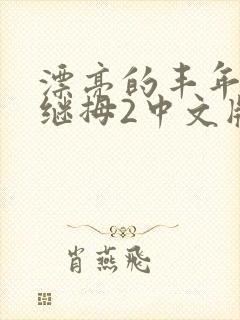 漂亮的丰年
继拇2中文版
肖燕飛